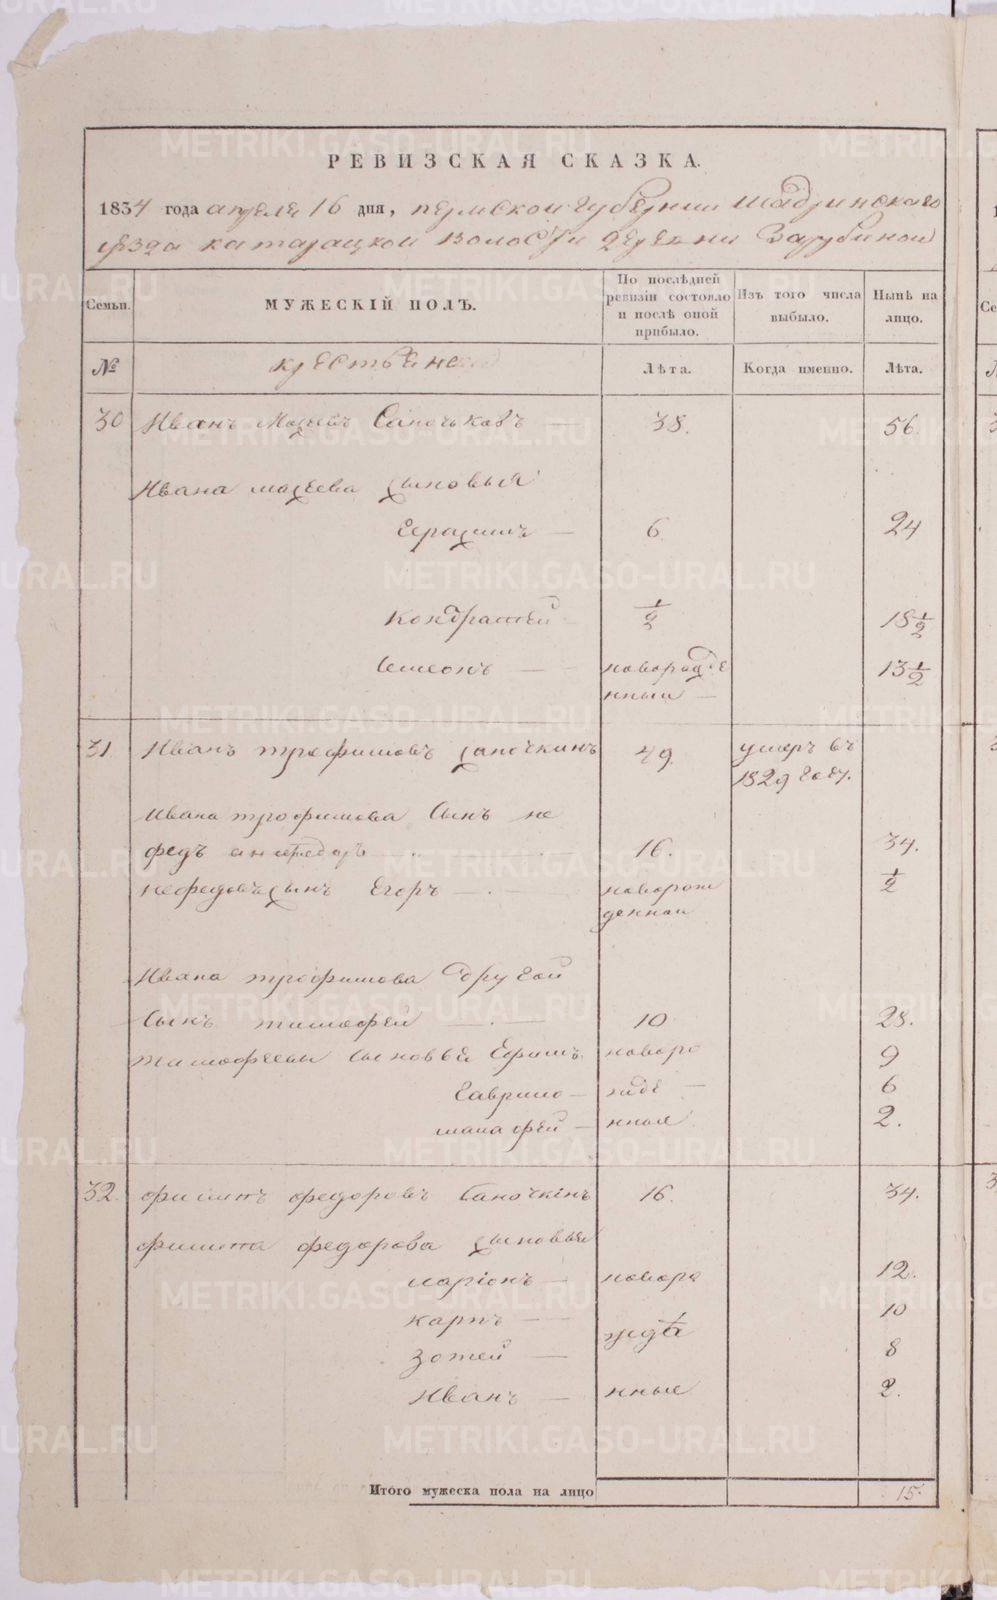 РЕВИЗСКАЯ СКАЗКА.
1834 года апреля 16 дня, пермской губернии Шадринскаго
уезда катайацкой волости деревни Зарубиной
Семьи. МУЖЕСКІЙ ПОЛЪ. По послѣдней ревизіи состояло и послѣ оной прибыло. Изъ того числа выбыло. Нынѣ на лицо.
№ Лѣта. Когда именно. Лѣта.
30 Иванъ Сапочьковъ — 38. 56.
Ивана сыновья
Герасимъ — 6 24
Кондратей 1/2 18 1/2
Семеонъ — новорожде 13 1/2
нныи —
31 Иванъ трофимовъ сапочкинъ 49. умеръ въ
1829 году.
Ивана трофимова Сынъ не
федъ 16. 34.
нефедовъ сынъ Егоръ — новорож 1/2
деннои
Ивана трофимова другой
Сынъ тимофей — 10 28.
тимофеевы сыновья Ефимъ новоро 9
Гаврило — жде — 6
— нные 2.
32. филипъ федоровъ Сапочкинъ 16. 34.
филипа федорова сыновья
ларіонъ — новоро 12.
карпъ — 10
зотей — жде 8
Иванъ — нные 2.
Итого мужеска пола на лицо 15.
METRIKI.GASO-URAL.RU